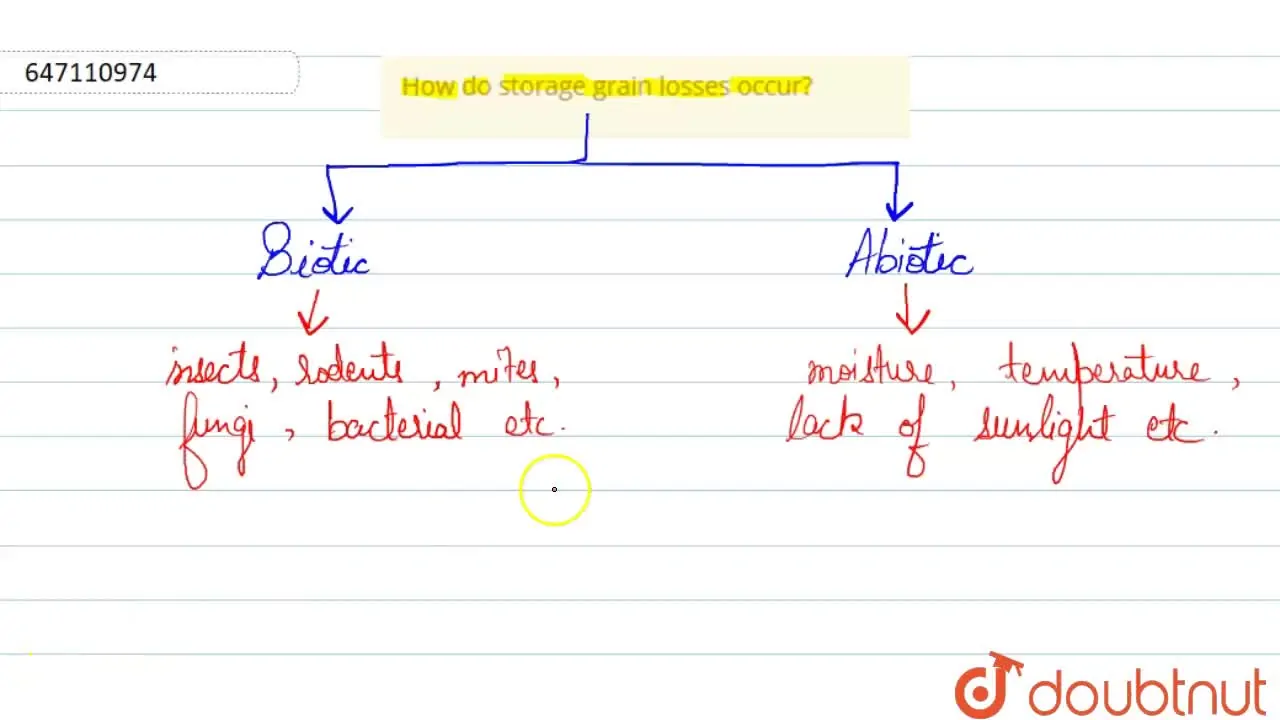 647110974
How do storage grain losses occur?
Biotic
Abiotic
insects, rodents, mites,
fungi, bacterial etc.
moisture, temperature,
lack of sunlight etc.
doubtnut